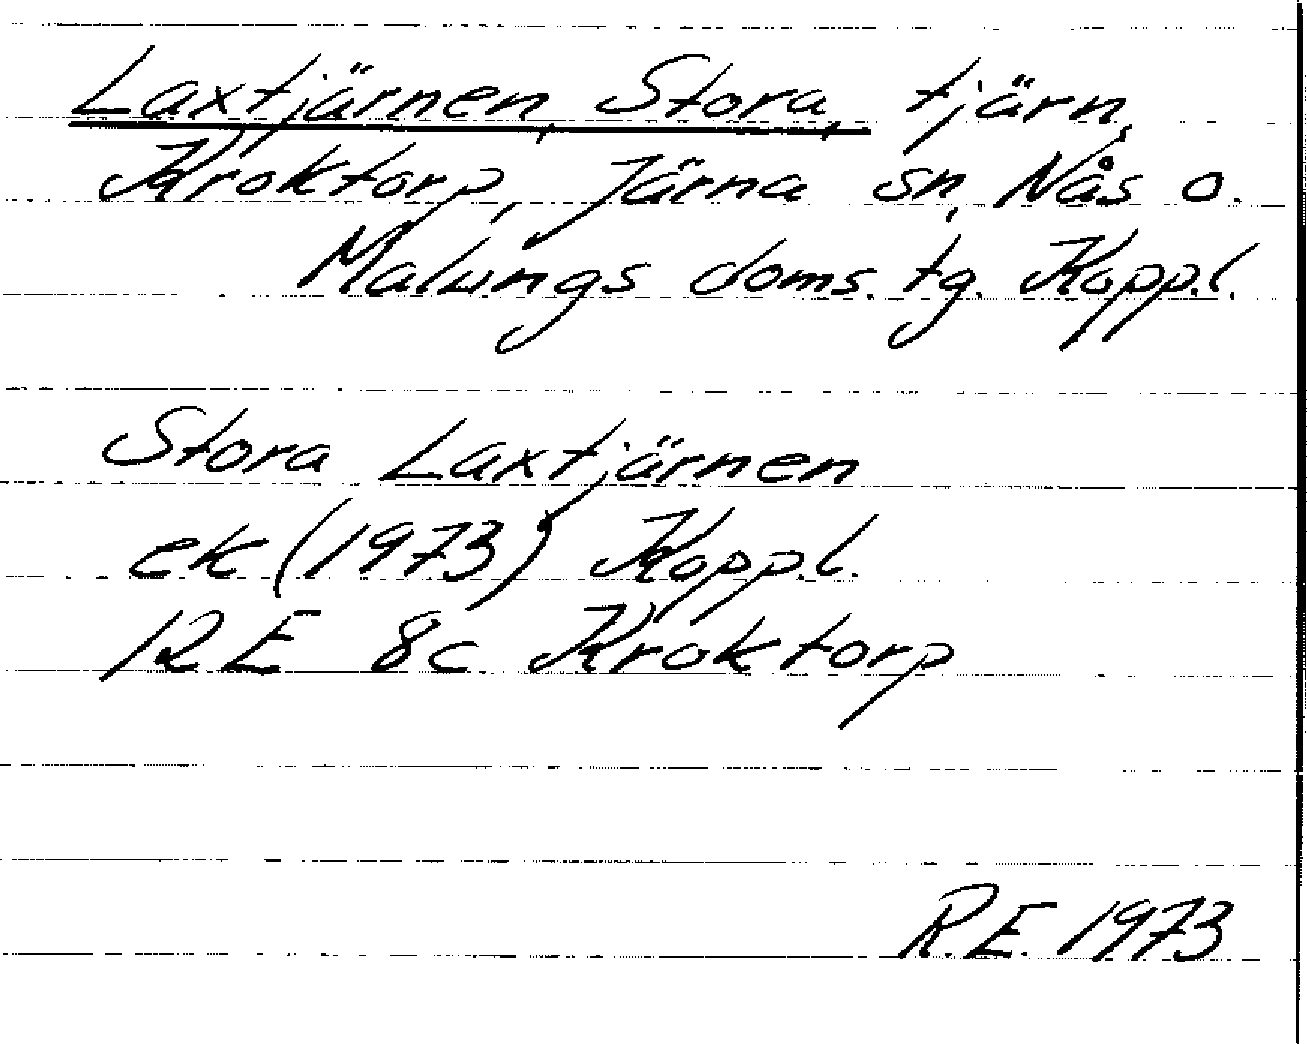 Laxtjärnen, Stora, tjärn,
Kroktorp, Järna sn, Nås o.
Malungs doms. tg. Kopp.l.
Stora Laxtjärnen
ek (1973) Kopp.l.
12E 8c Kroktorp
R.E. 1973